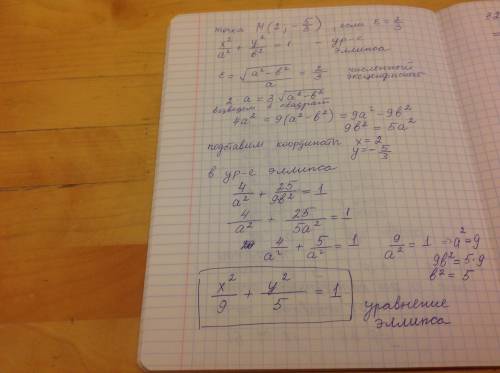 точка M(2; -5/3), если ε = 2/3
x²/a² + y²/b² = 1 - ур-е эллипса
ε = √(a²-b²)/a = 2/3 численный эксцентриситет
2a = 3√(a²-b²)
возведем в квадрат
4a² = 9(a²-b²) = 9a²-9b²
9b² = 5a²
подставим координаты x=2
y=-5/3
в ур-е эллипса
4/a² + 25/9b² = 1
4/a² + 25/5a² = 1
4/a² + 5/a² = 1 9/a² = 1 ⇒ a²=9
9b²=5·9
b²=5
x²/9 + y²/5 = 1
уравнение
эллипса